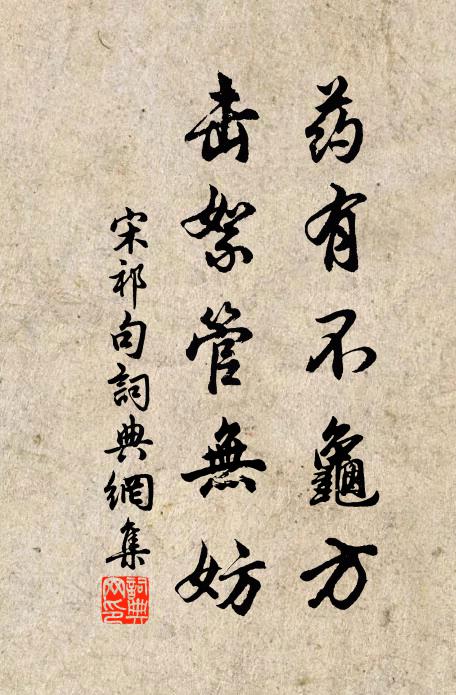 药有不龜方
击絮管無妨
宋祁句詞典網集
詞典
网印